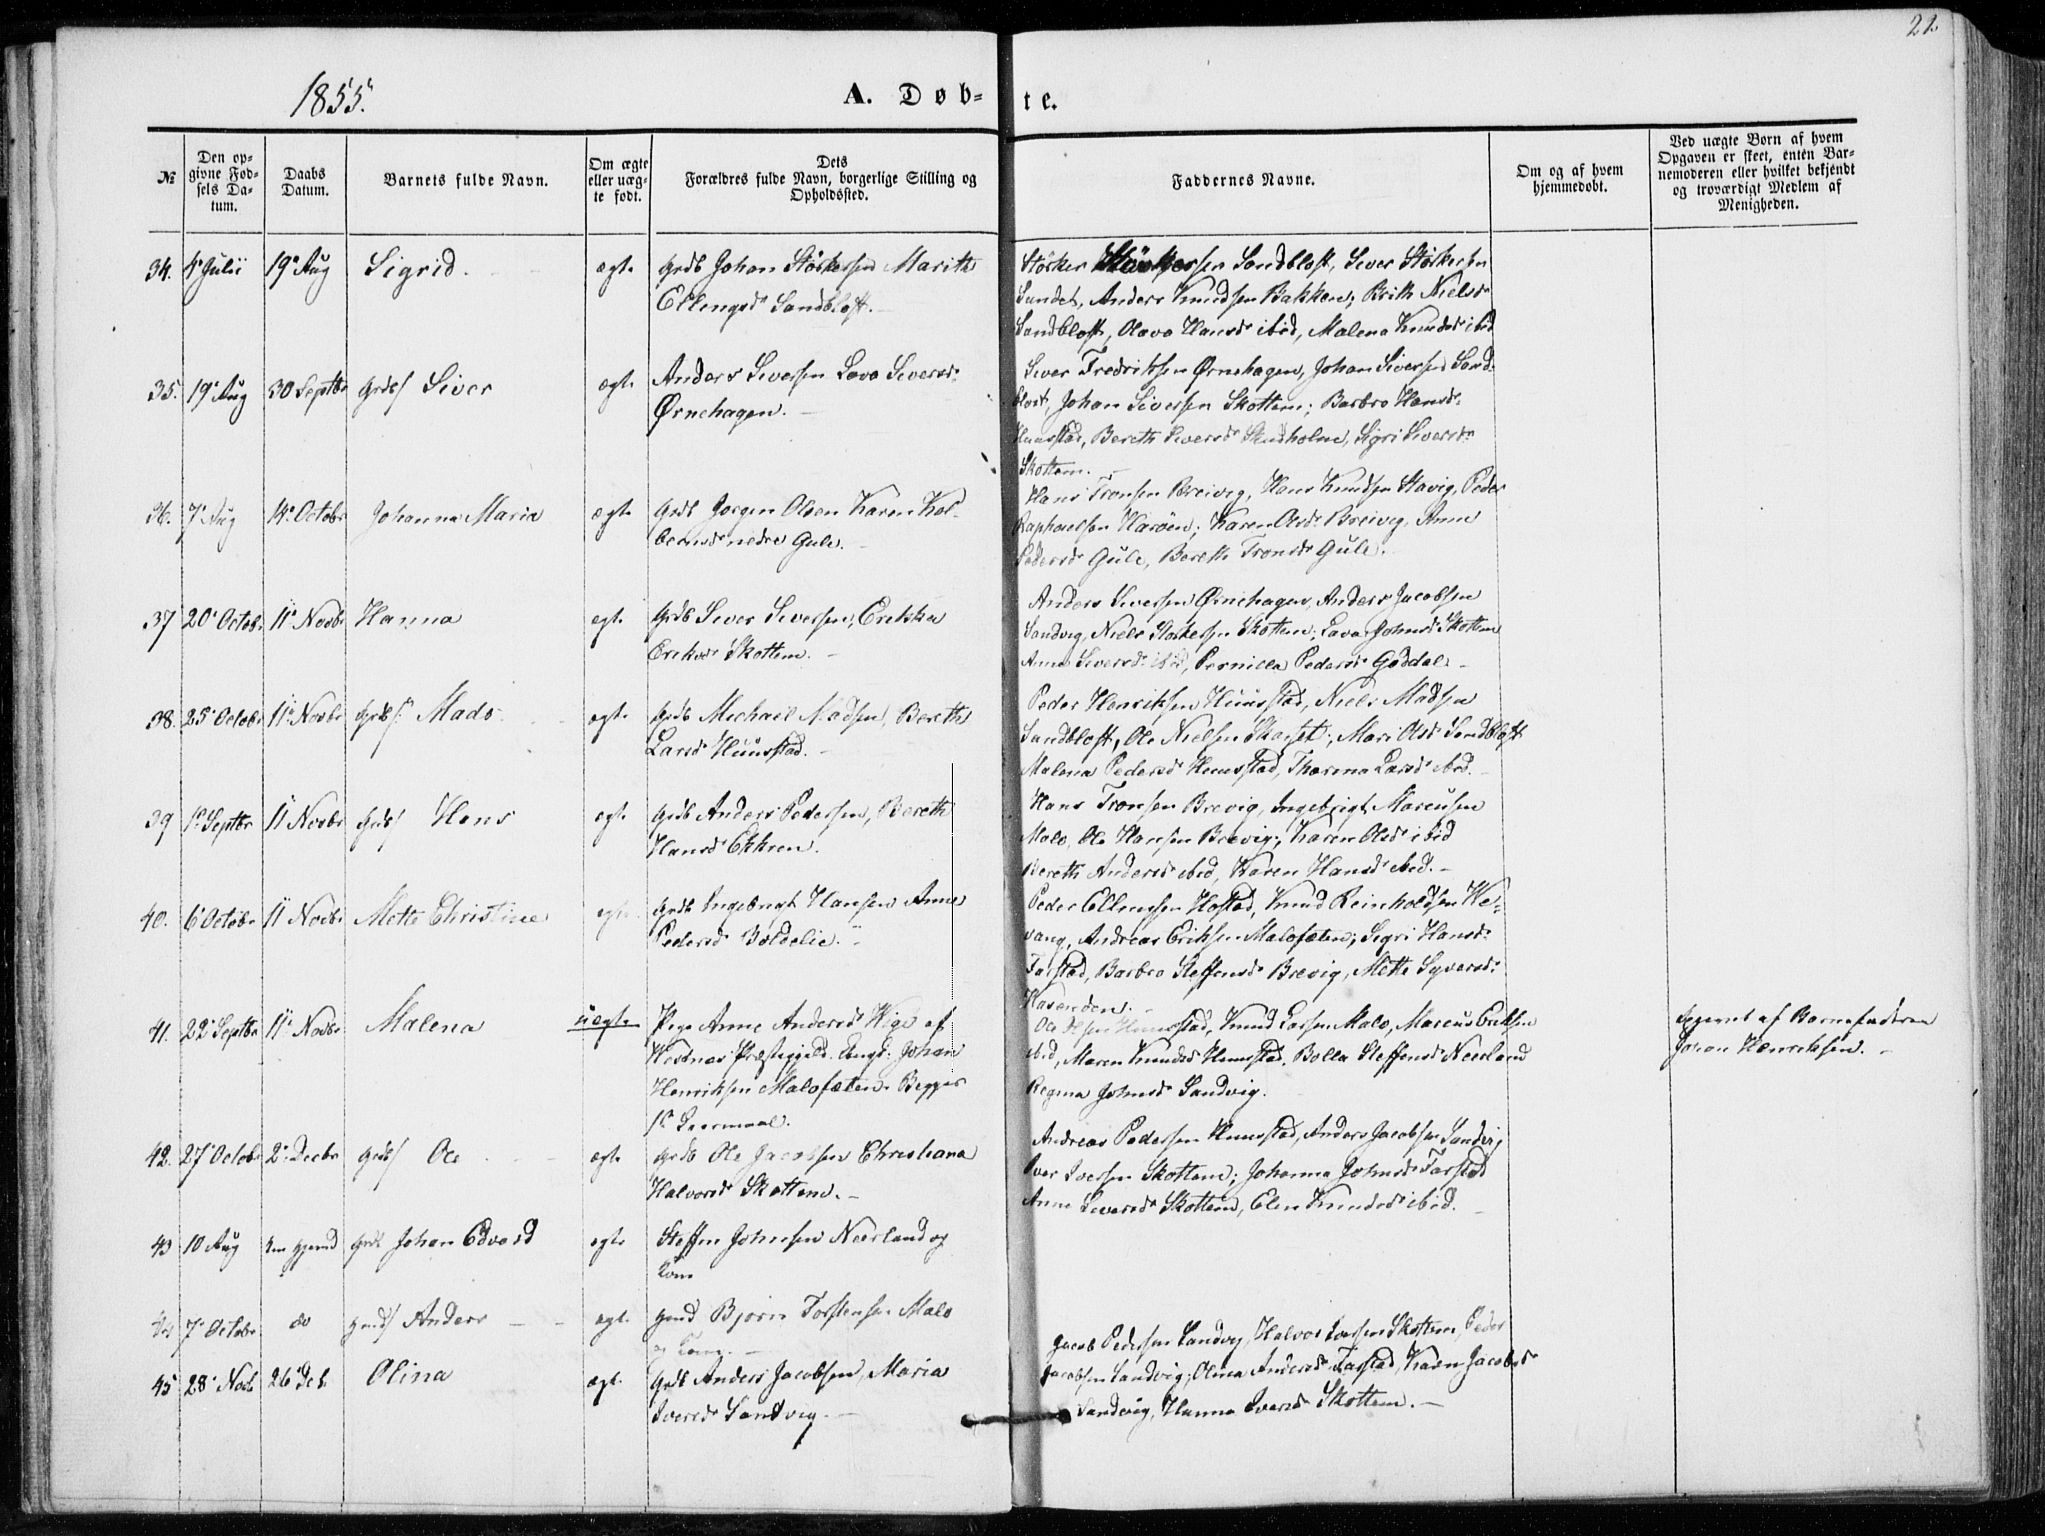 21
1855.
A. Døb-
te.
№
Den op-
givne Fød-
sels Da-
tum.
Daabs
Datum.
Barnets fulde Navn.
Om ægte
eller uæg-
te født.
Dets
Forældres fulde Navn, borgerlige Stilling og
Opholdssted.
Faddernes Navne.
Om og af hvem
hjemmedøbt.
Ved uægte Børn af hvem
Opgaven er skeet, enten Bar-
nemoderen eller hvilket bekjendt
og troværdigt Medlem af
Menigheden.
34. 4 Julii 19 Aug Sigrid. ægte Grdb Johan Störkersen Marith
Ellingsd Sandblost.
Störker Störkersen Sandblost, Siver Störkersen
Sundet, Anders Knudsen Bakken; Brith Nielsd
Sandblost, Olava Hansd ibid, Malena Knudsd ibid
35. 19 Aug 30 Septbr Siver ægte Anders Siversen Lava Siversd
Ørnehagen.
Siver Fredriksen Ørnehagen, Johan Siversen Sand-
blost, Johan Siversen Skottem; Barbro Hansd
Huustad, Bereth Siversd, Sigri Siversd
Skottem.
36. 7 Aug 14 Octobr Johanna Maria ægte Grdb Jørgen Olsen Karen Kol-
beensd nedre Gule.
Hans Tronsen Breivig, Hans Knudsen Stavig, Peder
Raphaelsen Harøen; Karen Olsd Breivig, Anne
Pedersd Gule, Bereth Tronsd Gule.
37 20 Octobr 11 Novbr Hanna egte Grdb Siver Siversen, Erikka
Eriksd Skottem.
Anders Siversen Ørnehagen, Anders Jacobsen
Sandvig, Niels Störkersen Skottem; Lava Johnsd Skottem
Anne Siversd ibid, Pernilla Pedersd Gøddal
38. 25 Octobr 11 Novbr Mads egte Grdb Michael Madsen, Bereth
Larsd Huustad.
Peder Henriksen Huustad, Niels Madsen
Sandblost, Ole Nielsen Skarset; Mari Olsd Sandblost
Malena Pedersd Huustad, Larsd ibid.
39 1 Septbr 11 Novbr Hans egte Grdb Anders Pedersen, Bereth
Hansd Ekkren.
Hans Tronsen Brevig, Ingebrigt Marcusen
Malo, Ole Hansen Brevig; Karen Olsd ibid
Bereth Andersd ibid, Karen Hansd ibid.
40. 6 Octobr 11 Novbr Mette Christine egte Grdb Ingebrigt Hansen Anne
Pedersd Boldelie.
Peder Ellingsen Hostad, Knud Reinholdsen
vang, Andreas Eriksen Malofeten; Sigri Hansd
Farstad, Barbro Steffensd Brevig, Mette Syversd
41. 22 Septbr 11 Novbr Malena uegte Pige Anne Andersd af
Præstegjeld. Ungk Johan
Henriksen Malofeten Begges
1 Leiermaal.
Huustad, Knud Larsen Malo, Marcus Eriksen
ibid, Maren Knudsd Huustad, Bolla Steffensd Neerland
Regina Johnsd Sandvig.
Opgivet af Barnefaderen
Johan Henriksen.
42. 27 Octobr 2 Decbr Ole egte Grdb Ole Jacobsen Christiana
Halvorsd Skottem.
Andreas Pedersen Huustad, Anders Jacobsen Sandvig
Iver Iversen Skottem; Johanna Johnsd Farstad
Anne Siversd Skottem, Elen Knudsd ibid.
43 10 Aug Johan Edvard egte Steffen Johnsen Neerland og
Kone
44 7 Octobr do Anders egte Bjørn Torstensen Malo
og Kone.
45 28 Novb 26 Dcb. Olina ægt. Grdb Anders Jacobsen, Maria
Iversd Sandvig.
Jacob Pedersen Sandvig, Halvor Iversen Skottem, Peder
Jacobsen Sandvig; Olina Andersd Farstad, Karen Jacobsd
Sandvig, Hanna Iversd Skottem.